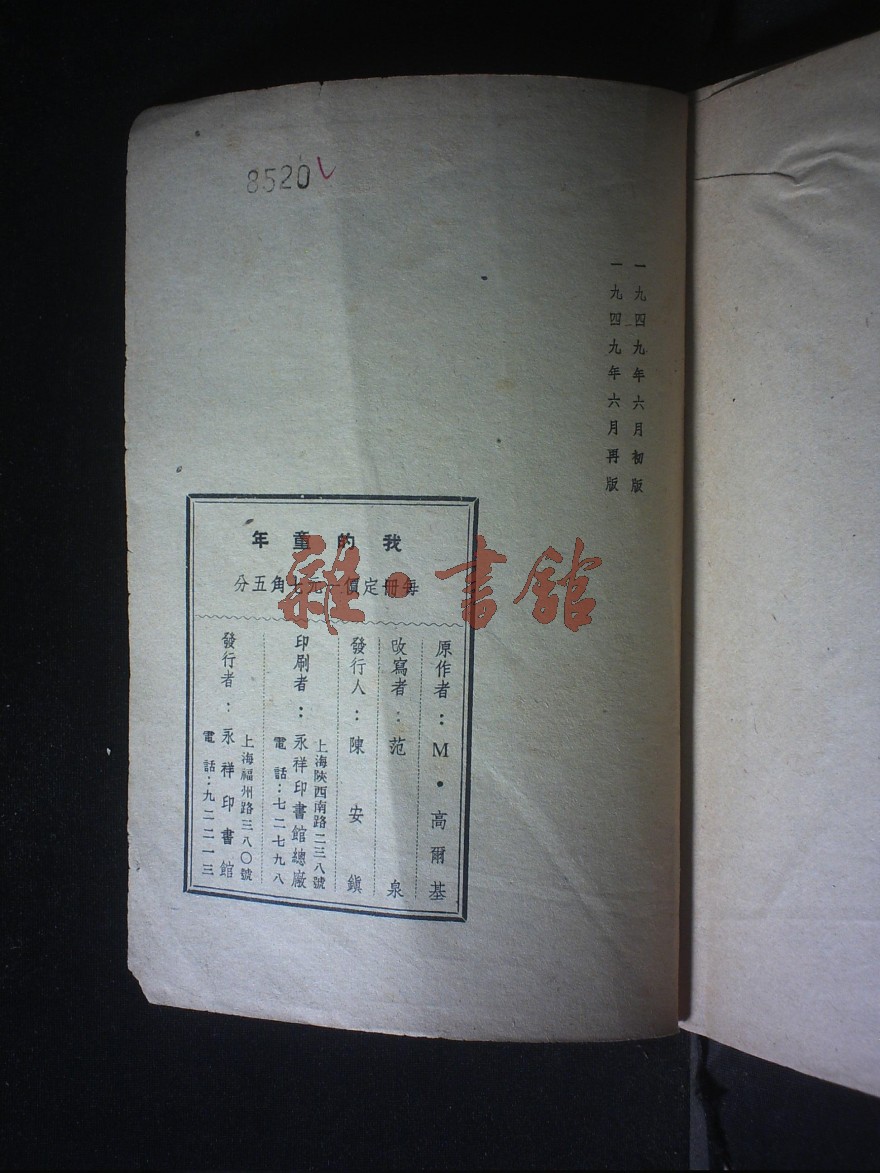 8520
一九四九年六月初版
一九四九年六月再版
我的童年
每冊定價一元七角五分
原作者：M·高爾基
改寫者：范泉
發行人：陳安鎮
印刷者：永祥印書館總廠
上海陝西南路二三八號
電話：七二七九八
發行者：永祥印書館
上海福州路三八〇號
電話：九二二一三
雜·書館